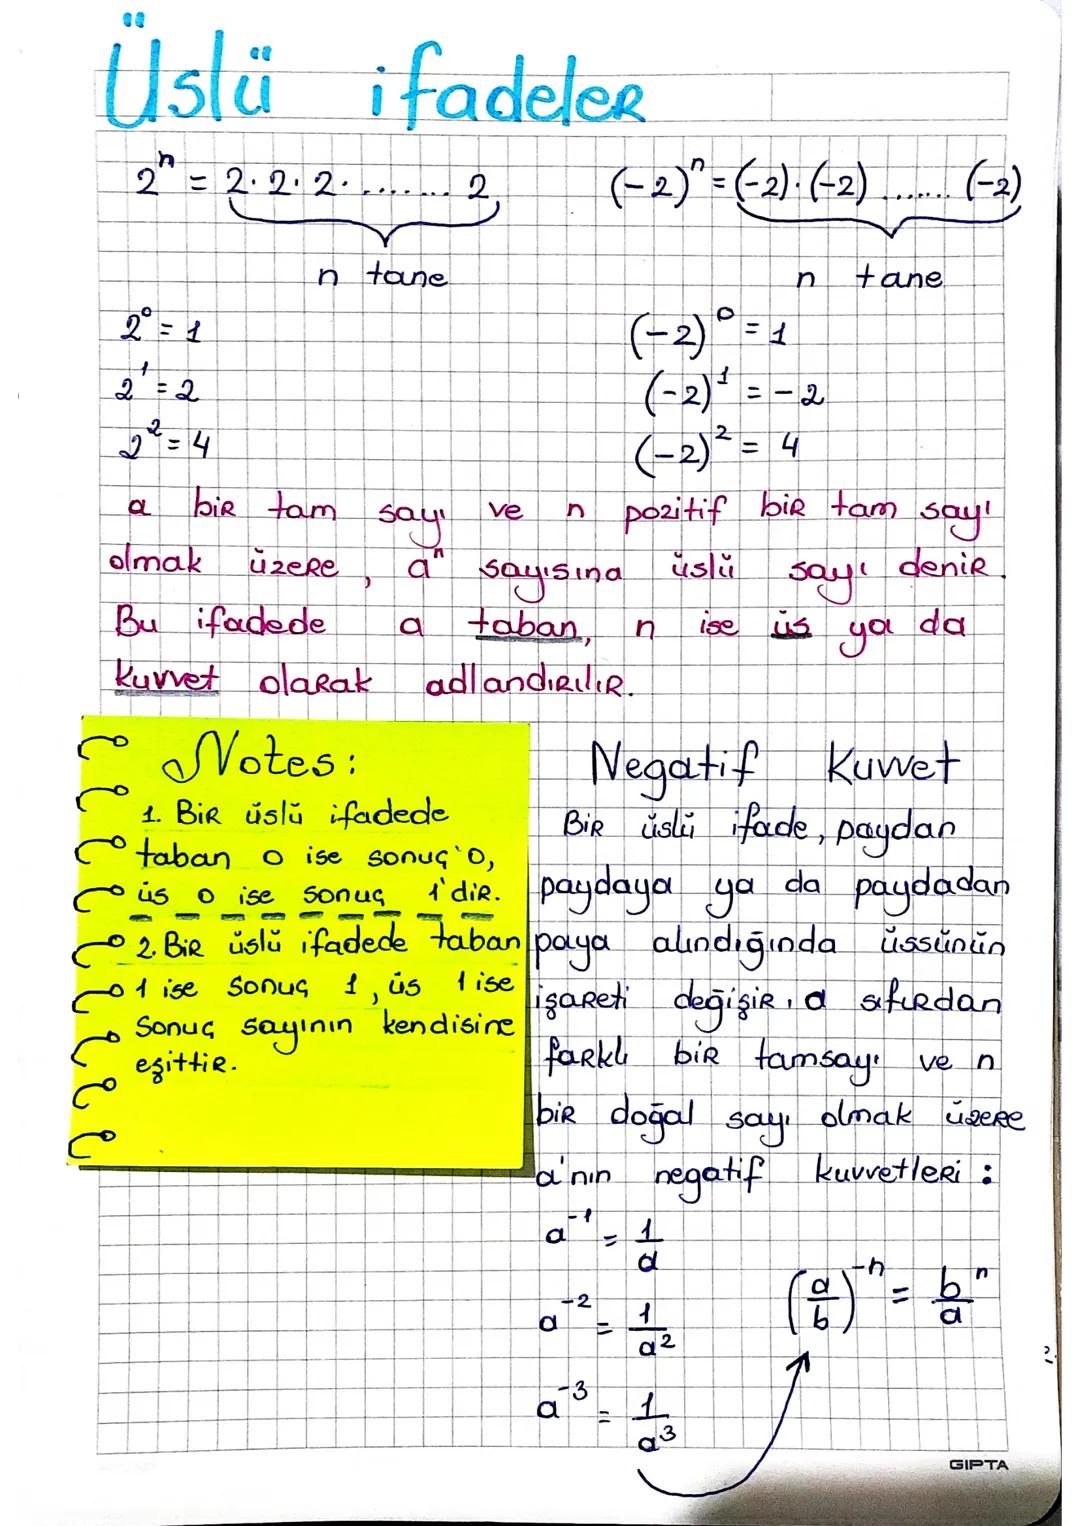 Üslü ifadeler
2ⁿ = 2.2.2. ........ 2
n tane
(-2)ⁿ = (-2).(-2) ....... (-2)
n tane
2⁰ = 1
2¹ = 2
2² = 4
(-2)⁰ = 1
(-2)¹ = -2
(-2)² = 4
a bir tam sayı ve n pozitif bir tam sayı
olmak üzere, aⁿ sayısına üslü sayı denir.
Bu ifadede a taban, n ise üs ya da
kuvvet olarak adlandırılır.
Notes:
1. Bir üslü ifadede
taban 0 ise sonuç 0,
üs 0 ise sonuç 1'dir.
2. Bir üslü ifadede taban
1 ise sonuç 1, üs 1 ise
sonuç sayının kendisine
eşittir.
Negatif Kuvvet
Bir üslü ifade, paydan
paydaya ya da paydadan
paya alındığında üssünün
işareti değişir, a sıfırdan
farklı bir tamsayı ve n
bir doğal sayı olmak üzere
a'nın negatif kuvvetleri :
a⁻¹ = 1/a
a⁻² = 1/a²
a⁻³ = 1/a³
(a/b)⁻ⁿ = b/a ⁿ
GIPTA